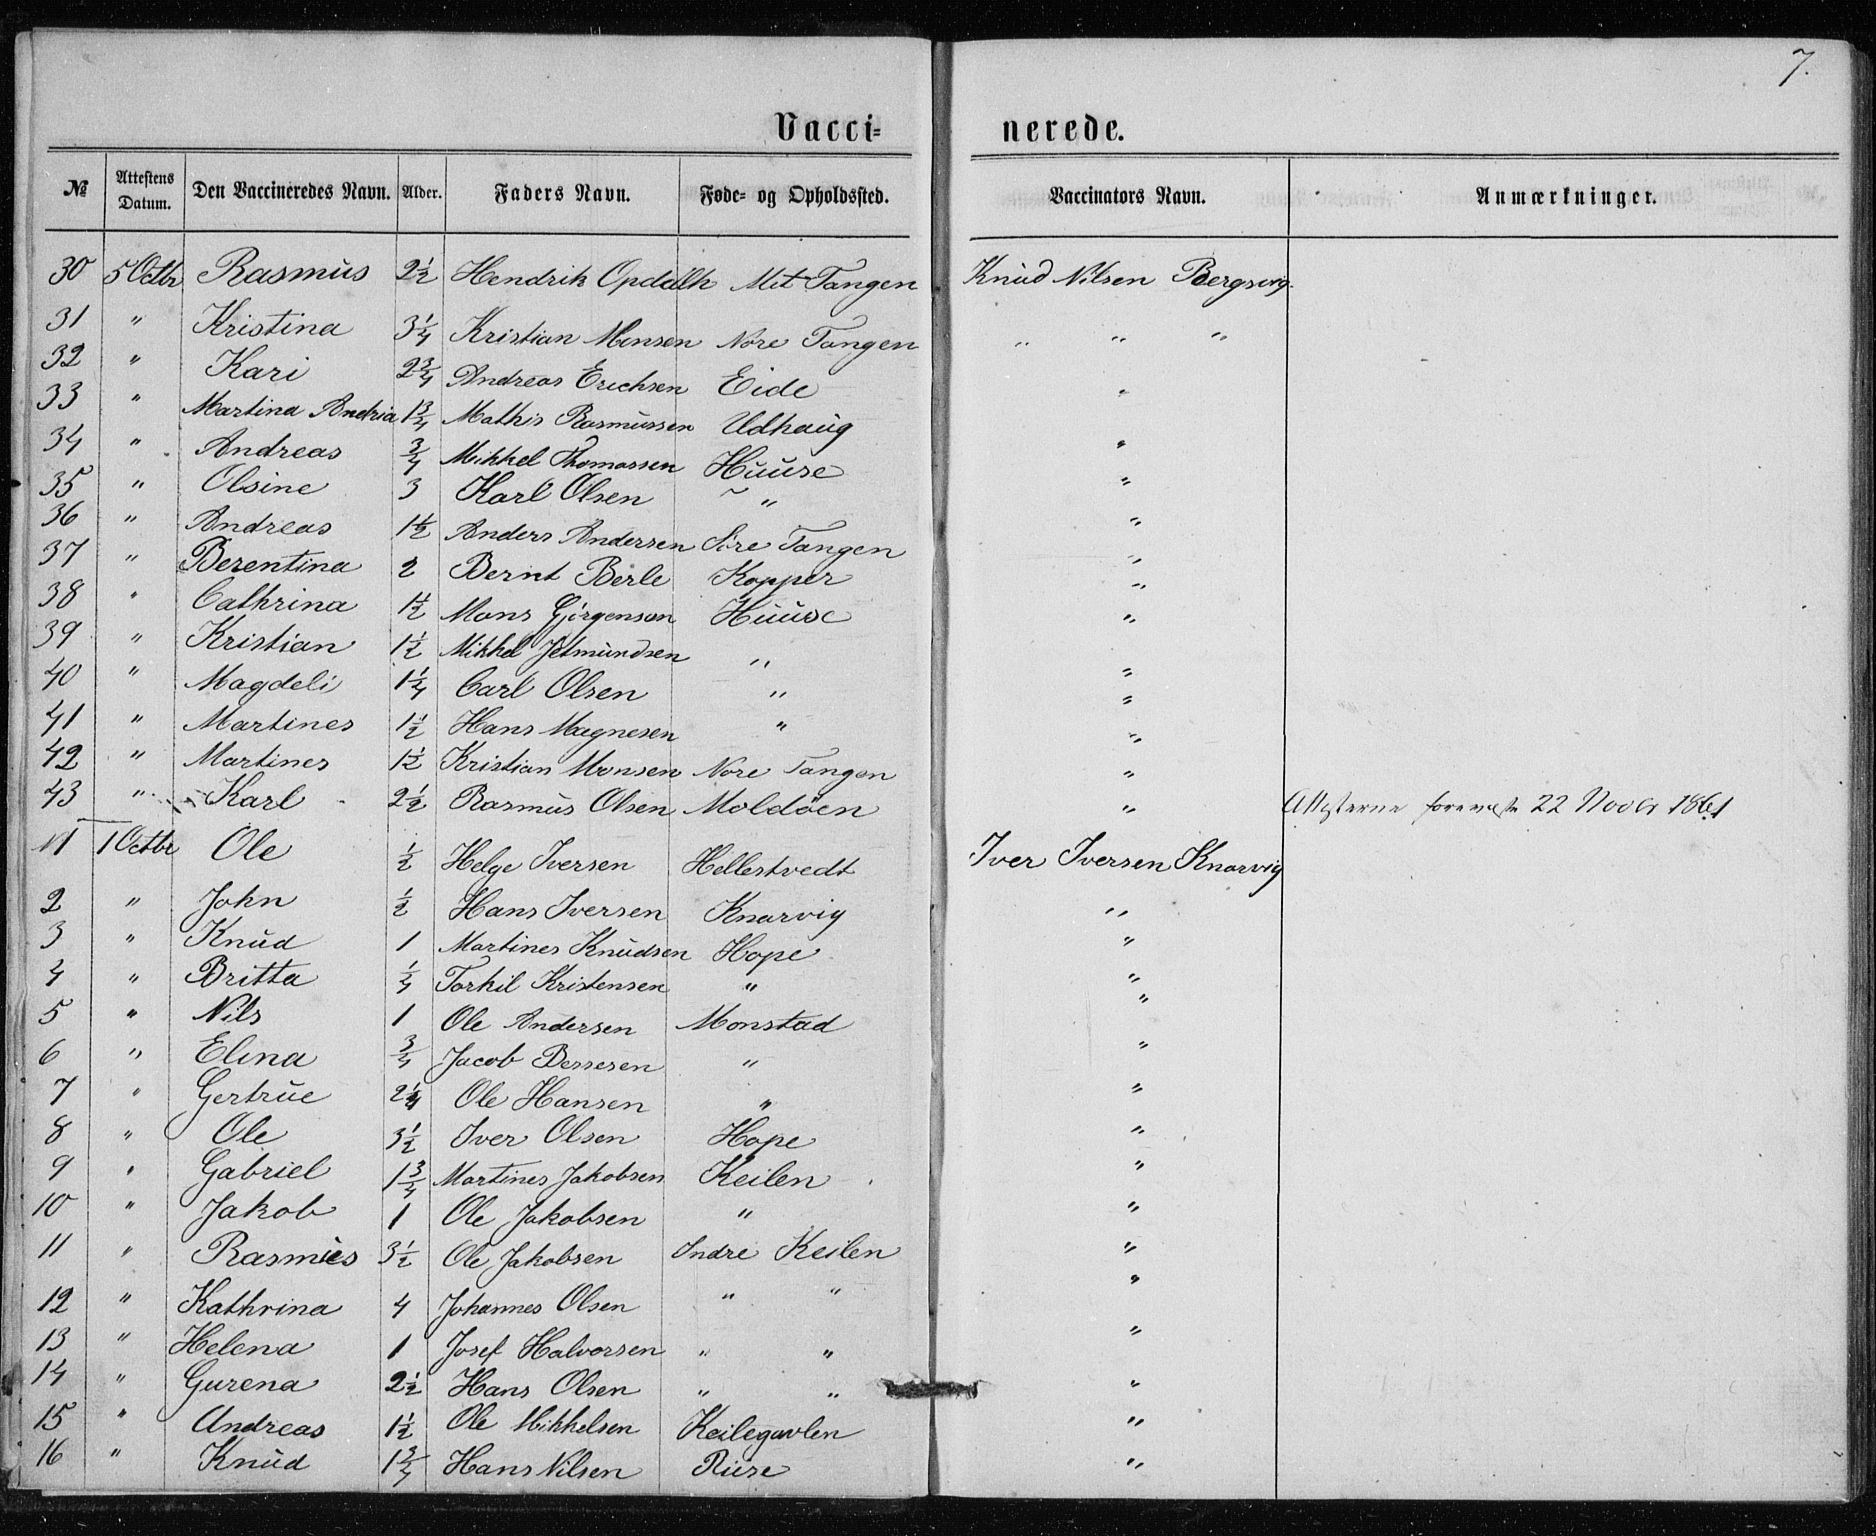 7.
Vacci= nerede.
№ | Attestens Datum. | Den Vaccineredes Navn. | Alder. | Faders Navn. | Føde= og Opholdssted. | Vaccinators Navn. | Anmærkninger.
30 5 Octbr Rasmus 2 1/2 Hendrik Opdalh Mit Tangen Knud Nilsen Bergsvig.
31 " Kristina 3 1/4 Kristian Monsen Nore Tangen " " "
32 " Kari 2 3/4 Andreas Erichsen Eide "
33 " Martina Andria 1 3/4 Mathis Rasmussen Udhaug "
34 " Andreas 3/4 Mikkel Thomassen Huuse "
35 " Olsine 3 Karl Olsen " "
36 " Andreas 1 1/2 Anders Andersen Søre Tangen "
37 " Berentina 2 Bernt Berle Kopper "
38 " Cathrina 1 1/2 Mons Gjørgensen Huuse "
39 " Kristian 1 1/2 Mikkel Jetmundsen " "
40 " Magdeli 1 1/4 Carl Olsen " "
41 " Martines 1 1/2 Hans Magnesen " "
42 " Martines 1 1/2 Kristian Monsen Nore Tangen "
43 " Karl 2 1/2 Rasmus Olsen Moldøen " Attesterne foreviste 22 Novbr 1861
1 1 Octbr Ole 1/2 Helge Iversen Hellestvedt Iver Iversen Knarvig
2 " John 1/2 Hans Iversen Knarvig "
3 " Knud 1 Martines Knudsen Hope "
4 " Britta 1/4 Torkil Kristensen " "
5 " Nils 1 Ole Andersen Monstad "
6 " Elina 3/4 Jacob Bessesen " "
7 " Gertrue 2 1/4 Ole Hansen " "
8 " Ole 3 1/2 Iver Olsen Hope "
9 " Gabriel 1 3/4 Martines Jakobsen Keilen "
10 " Jakob 1 Ole Jakobsen " "
11 " Rasmus 3 1/2 Ole Jakobsen Indre Keilen "
12 " Kathrina 4 Johannes Olsen " " "
13 " Helena 1 Josef Halvorsen " " "
14 " Gurena 2 1/2 Hans Olsen " " "
15 " Andreas 1 1/2 Ole Mikkelsen Keilegavlen "
16 " Knud 1 3/4 Hans Nilsen Riise "